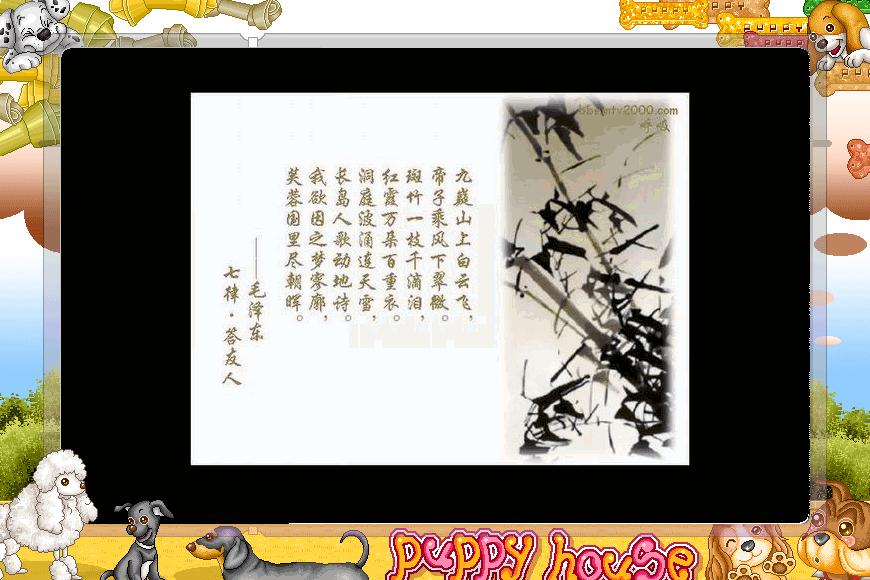 九嶷山上白云飞，
帝子乘风下翠微。
斑竹一枝千滴泪，
红霞万朵百重衣。
洞庭波涌连天雪，
长岛人歌动地诗。
我欲因之梦寥廓，
芙蓉国里尽朝晖。
——毛泽东
七律·答友人
puppy house